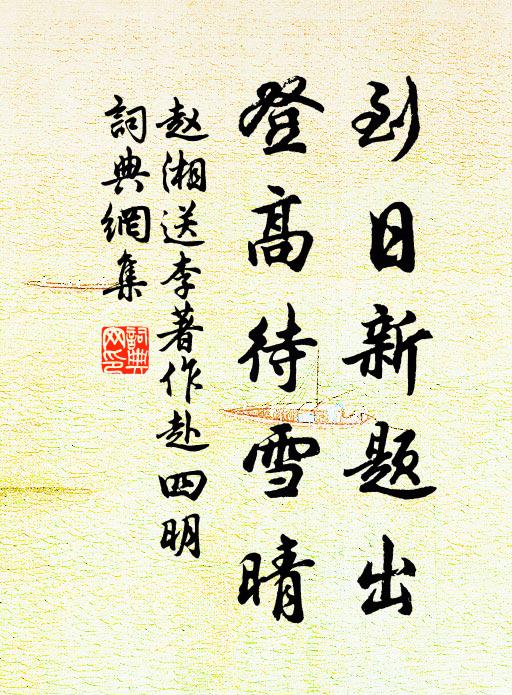 到日新题出
登高待雪晴
赵湘送李著作赴四明
詞典網集
詞典
网印